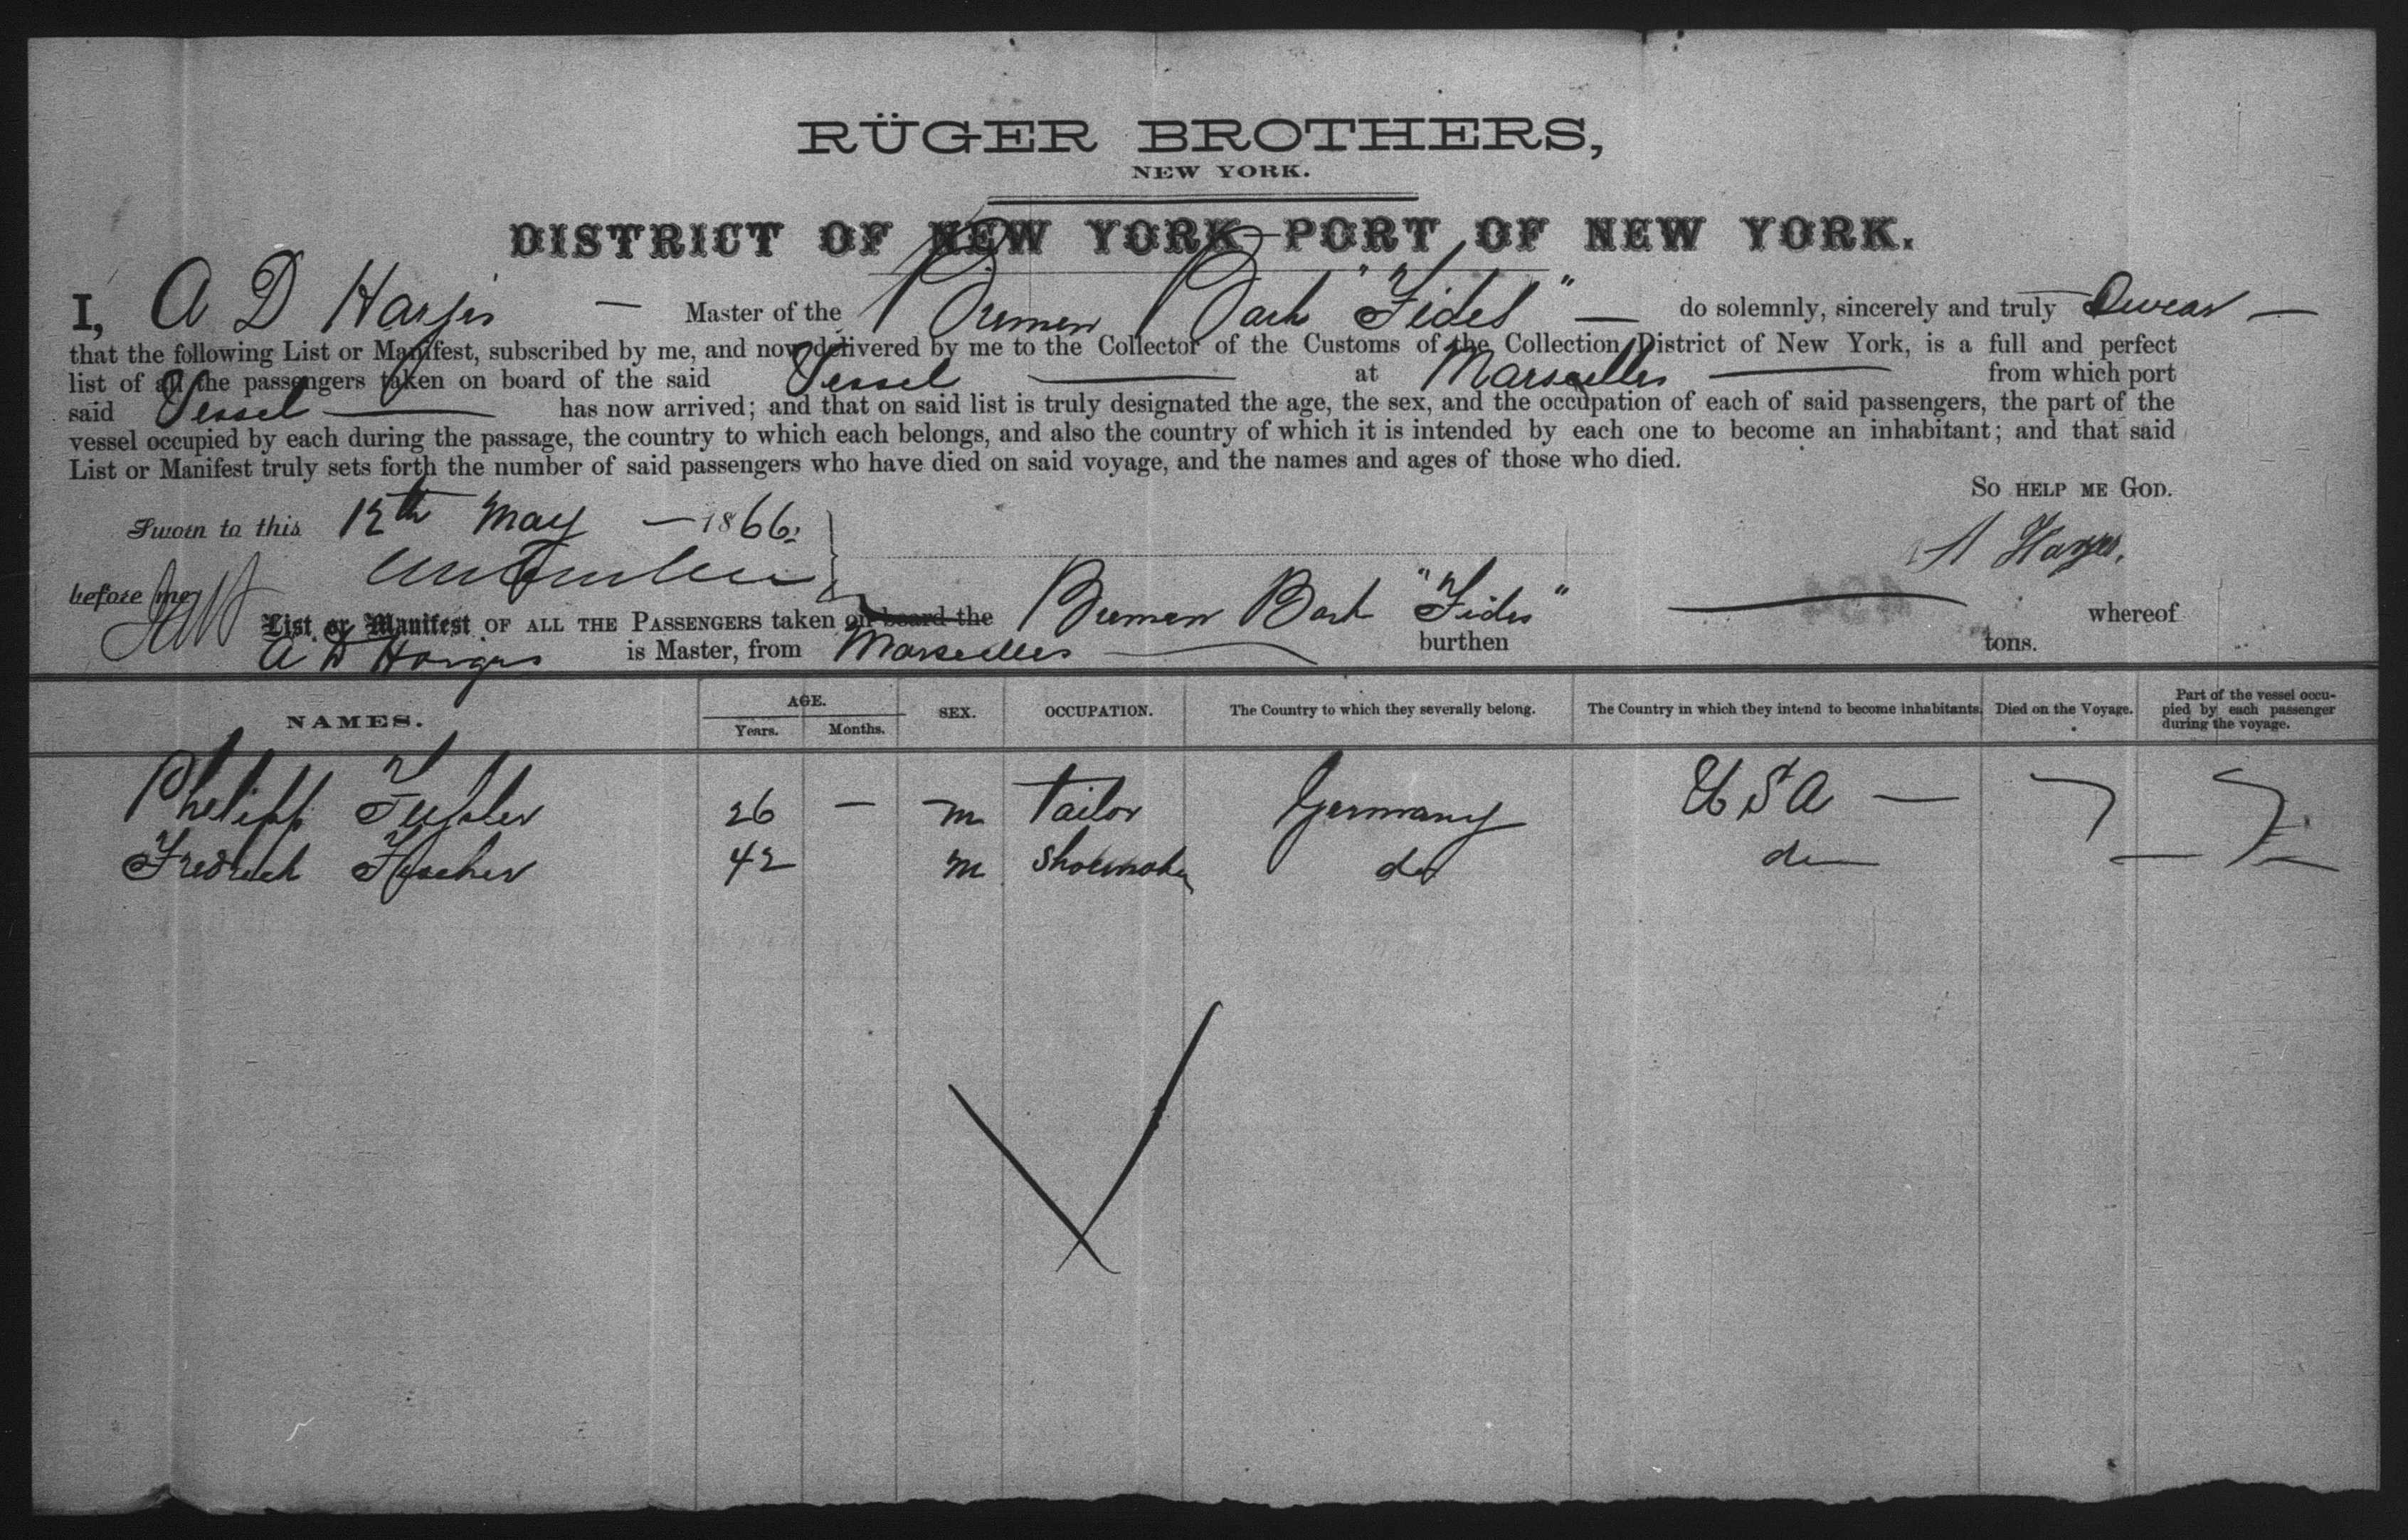 RÜGER BROTHERS,
NEW YORK.
DISTRICT OF NEW YORK—PORT OF NEW YORK.
I, A D — Master of the Bremen Bark "Fides" — do solemnly, sincerely and truly Swear —
that the following List or Manifest, subscribed by me, and now delivered by me to the Collector of the Customs of the Collection District of New York, is a full and perfect
list of all the passengers taken on board of the said Vessel — at Marseilles — from which port
said Vessel — has now arrived; and that on said list is truly designated the age, the sex, and the occupation of each of said passengers, the part of the
vessel occupied by each during the passage, the country to which each belongs, and also the country of which it is intended by each one to become an inhabitant; and that said
List or Manifest truly sets forth the number of said passengers who have died on said voyage, and the names and ages of those who died.
SO HELP ME GOD.
Sworn to this 12th May — 1866.
before me
List or Manifest OF ALL THE PASSENGERS taken on board the Bremen Bark "Fides" — whereof
A D is Master, from Marseilles — burthen tons.
NAMES. AGE. Years. Months. SEX. OCCUPATION. The Country to which they severally belong. The Country in which they intend to become inhabitants. Died on the Voyage. Part of the vessel occupied by each passenger during the voyage.
Philipp 26 — m Tailor Germany U S A —
Fredrich Fischer 42 m Shoemaker do do —